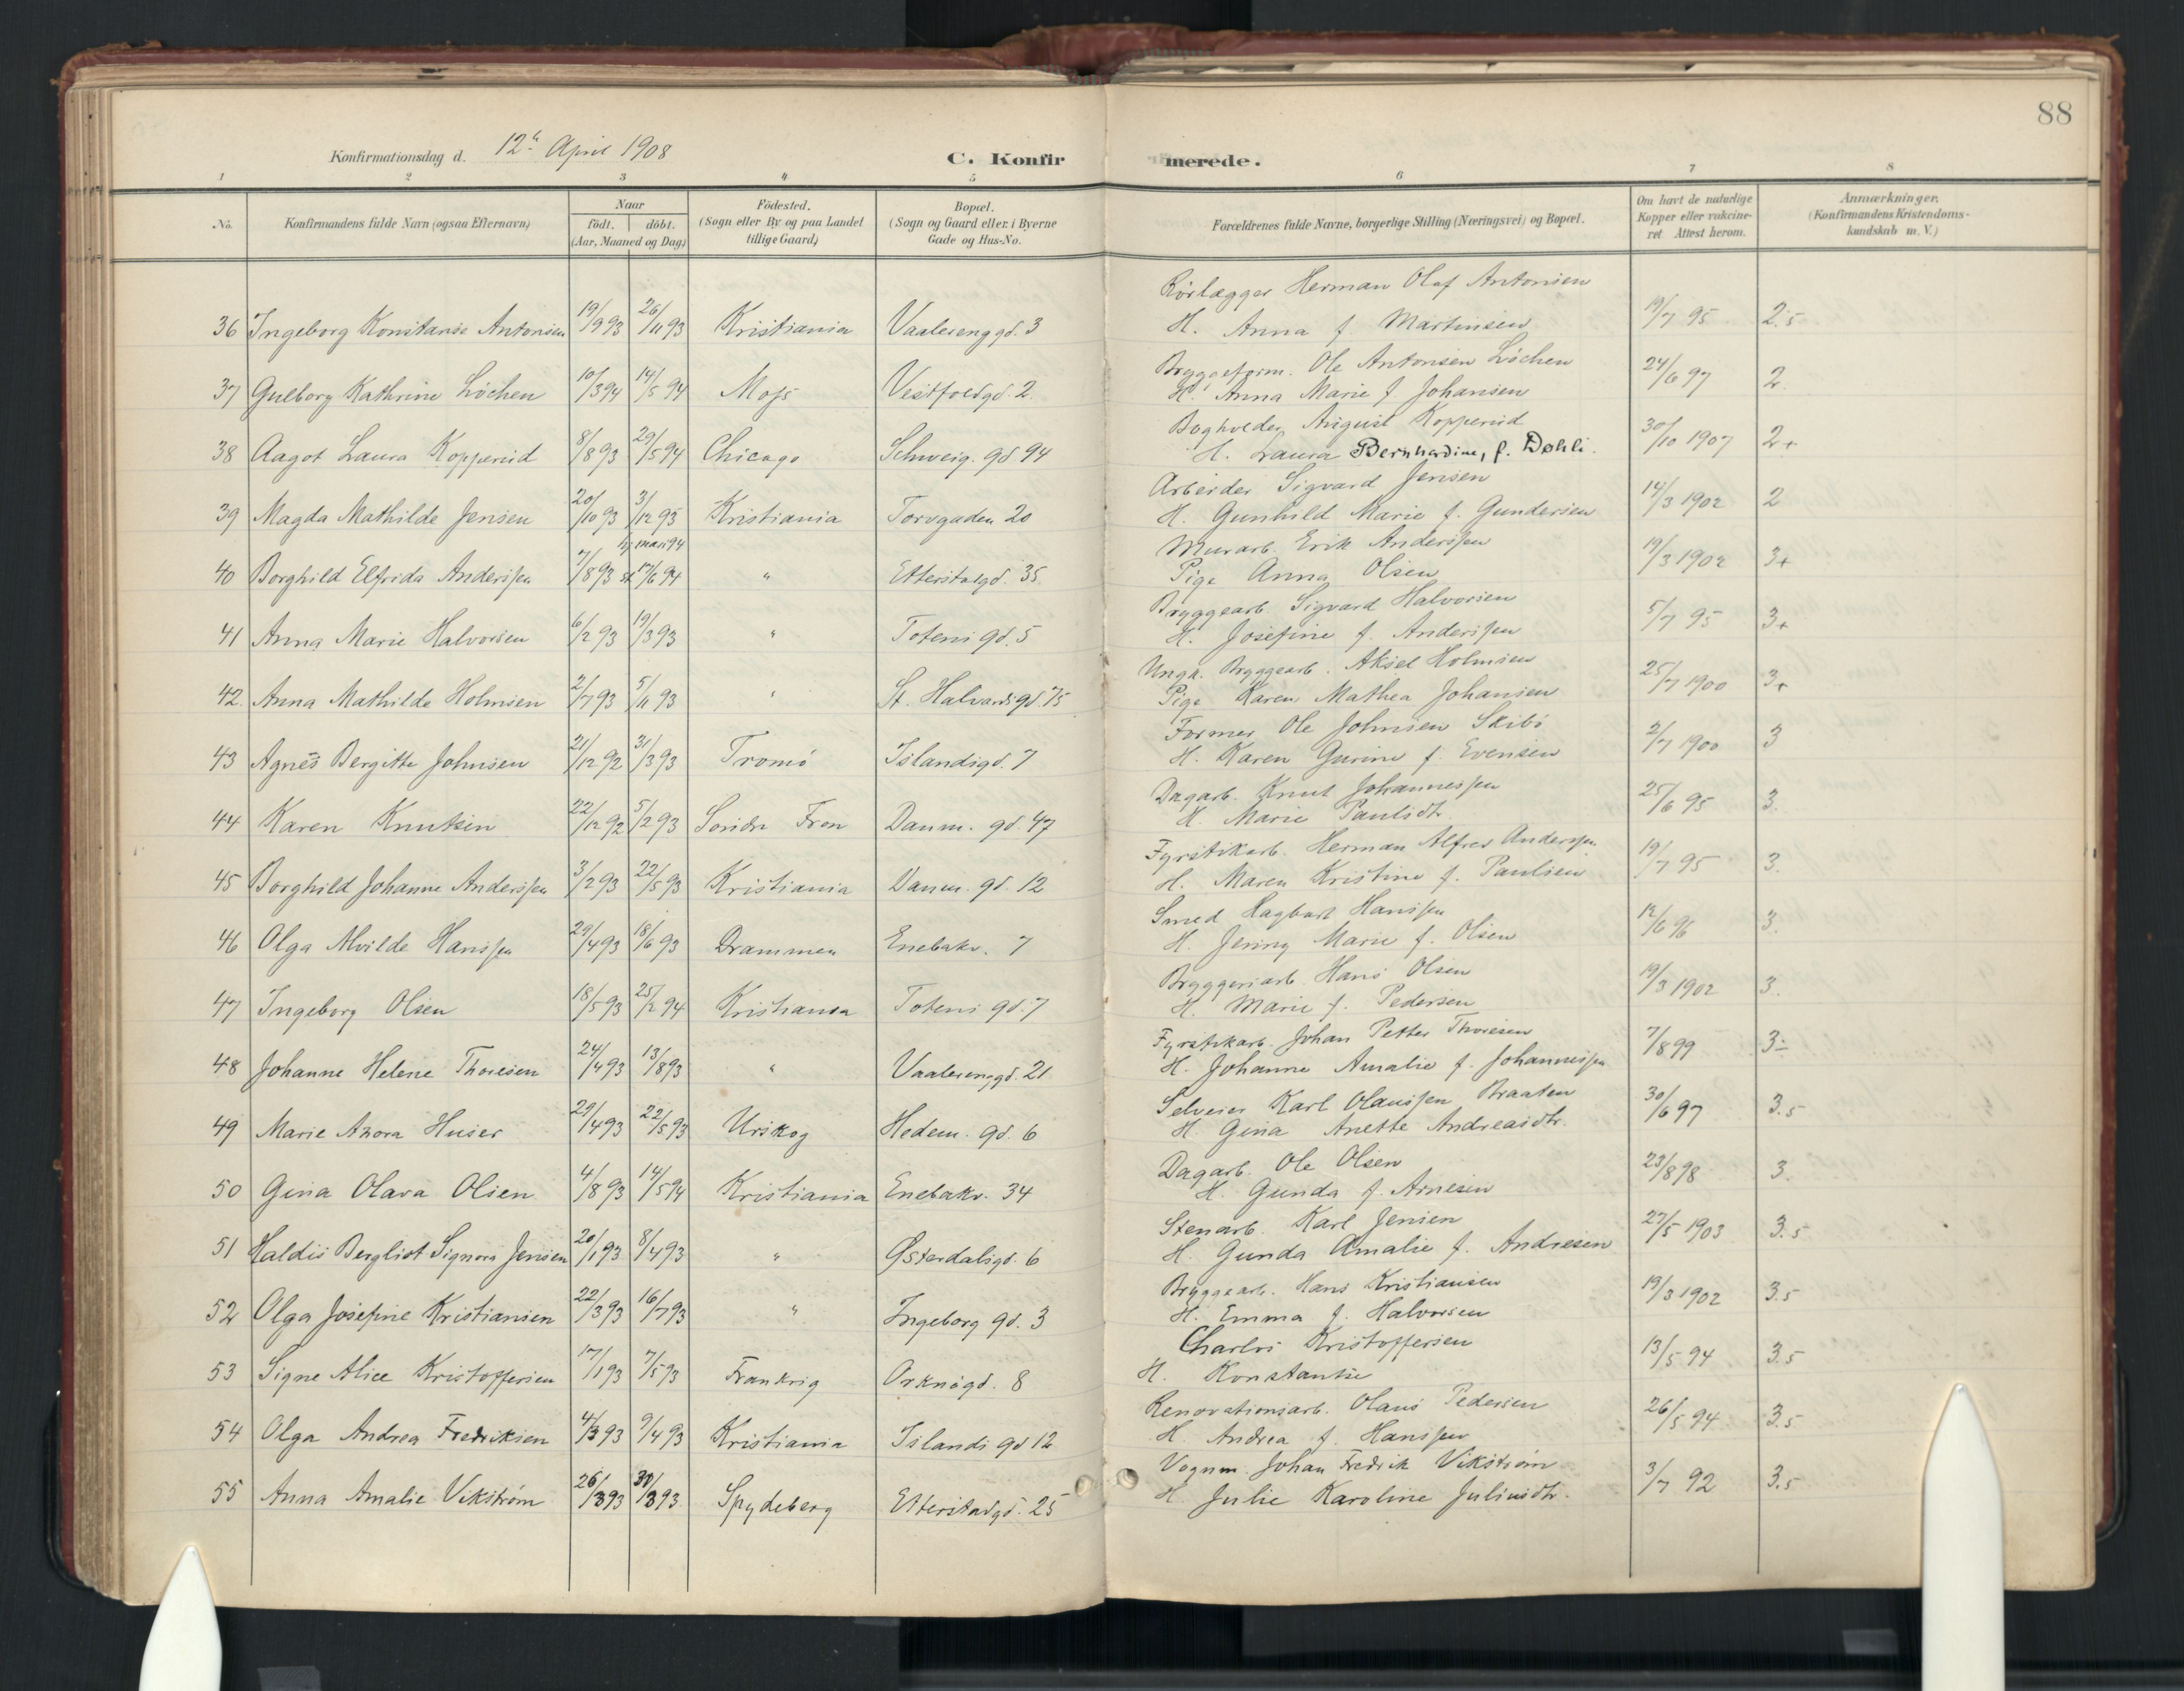 88
Konfirmationsdag d. 12te April 1908 C. Konfirmerede.
1 2 3 4 5 6 7 8
No. Konfirmandens fulde Navn (ogsaa Efternavn) Naar födt. döbt. (Aar, Maaned og Dag) Födested. (Sogn eller By og paa Landet tillige Gaard) Bopæl. (Sogn og Gaard eller i Byerne Gade og Hus-No. Forældrenes fulde Navne, borgerlige Stilling (Næringsvei) og Bopæl. Om havt de naturlige Kopper eller vakcineret Attest herom. Anmærkninger. (Konfirmandens Kristendomskundskab m. V.)
Rörlægger Herman Olaf Antonsen
36 Ingeborg Konstanse Antonsen 19/9 93 26/11 93 Kristiania Vaalerenggd. 3 H. Anna f. Martinsen 19/7 95 2.5
Bryggeform. Ole Antonsen Löchen
37 Gulborg Kathrine Löchen 10/3 94 14/5 94 Moss Vestfoldgd. 2. H. Anna Marie f Johansen 24/6 97 2.
Bogholder August Kopperud
38 Aagot Laura Kopperud 8/8 93 29/5 94 Chicago Schweig. gd 94 H. Laura Bernhardine, f. Døhli. 30/10 1907 2+
Arbeider Sigvard Jensen
39 Magda Mathilde Jensen 20/10 93 3/12 93 Kristiania Torvgaden 20 H. Gunhild Marie f. Gundersen 14/3 1902 2
Murarb. Erik Anderssen
40 Borghild Elfrida Anderssen 7/8 93 17/6 94 " Etterstadgd. 35 Pige Anna Olsen 19/3 1902 3+
Bryggearb. Sigvard Halvorsen
41 Anna Marie Halvorsen 6/2 93 19/3 93 " Totensgd. 5 H. Josefine f. Anderssen 5/7 95 3+
Ungk. Bryggearb. Aksel Holmsen
42. Anna Mathilde Holmsen 2/7 93 5/11 93 " St. Halvardsgd. 75 Pige Karen Mathea Johansen 25/7 1900 3+
Former Ole Johnsen Skibö
43 Agnes Bergitte Johnsen 21/12 92 31/3 93 Tromö Islandsgd. 7 H. Karen Gurine f. Evensen 2/7 1900 3
Dagarb. Knut Johannessen
44 Karen Knutsen 22/12 92 5/2 93 Söndre Fron Danm. gd. 47 H. Marie Paulsdtr. 25/6 95 3.
Fyrstikarb. Herman Alfred Anderssen
45 Borghild Johanne Anderssen 3/2 93 22/5 93 Kristiania Danm. gd. 12 H. Maren Kristine f. Paulsen 19/7 95 3.
Smed Hagbart Hanssen
46 Olga Alvilde Hanssen 29/4 93 18/6 93 Drammen Enebakv. 7 H. Jenny Marie f. Olsen 12/6 96 3.
Bryggeriarb. Hans Olsen
47 Ingeborg Olsen 18/5 93 25/2 94 Kristiania Totens gd. 7 H. Marie f. Pedersen 19/3 1902 3.
Fyrstikarb. Johan Petter Thoresen
48 Johanne Helene Thoresen 24/4 93 13/8 93 " Vaalerenggd. 21 H. Johanne Amalie f. Johannessen 7/8 99 3÷
Selveier Karl Olaussen Braaten
49 Marie Azora Huser 29/4 93 22/5 93 Urskog Hedem. gd. 6 H. Gina Anette Andreasdtr. 30/6 97 3.5
Dagarb. Ole Olsen
50 Gina Olava Olsen 4/8 93 14/5 94 Kristiania Enebakv. 34 H. Gunda f. Arnesen 23/8 98 3.
Stenarb. Karl Jensen
51 Haldis Bergliot Signora Jensen 20/1 93 8/4 93 " Østerdalsgd. 6 H. Gunda Amalie f. Andresen 27/5 1903 3.5
Bryggearb. Hans Kristiansen
52 Olga Josefine Kristiansen 22/3 93 16/7 93 " Ingeborg gd. 3 H. Emma f. Halvorsen 19/3 1902 3.5
Charles Kristoffersen
53 Signe Alice Kristoffersen 17/1 93 7/5 93 Frankrig Orknögd. 8 H. Konstantse 13/5 94 3.5
Renovationsarb. Olaus Pedersen
54 Olga Andrea Fredriksen 4/3 93 9/4 93 Kristiania Islands gd 12 H. Andrea f. Hanssen 26/5 94 3.5
Vognm. Johan Fredrik Vikstrøm
55 Anna Amalie Vikstrøm 26/3 93 Spydeberg Etterstadgd. 25 H. Julie Karoline Juliusdtr. 3/7 92 3.5